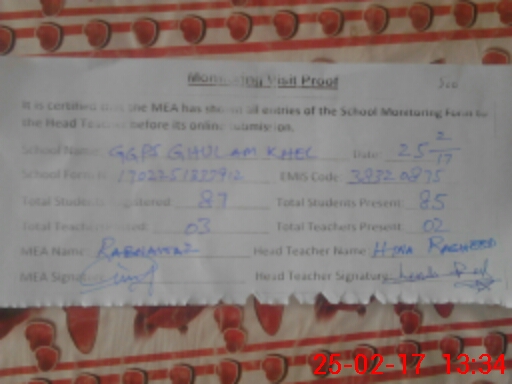 Monitoring Visit Proof
It is certified that the MEA has shown all entries of the School Monitoring Form to
the Head Teacher before its online submission.
School Name: GGPS GHULAM KHEL Date: 25 2/17
School Form EMIS Code: 38320875
Total Students Registered 87 Total Students Present: 85
Total Teachers 03 Total Teachers Present 02
MEA Name: Head Teacher Name: HINA RASHEED
MEA Signature Head Teacher Signature
25-02-17 13:34